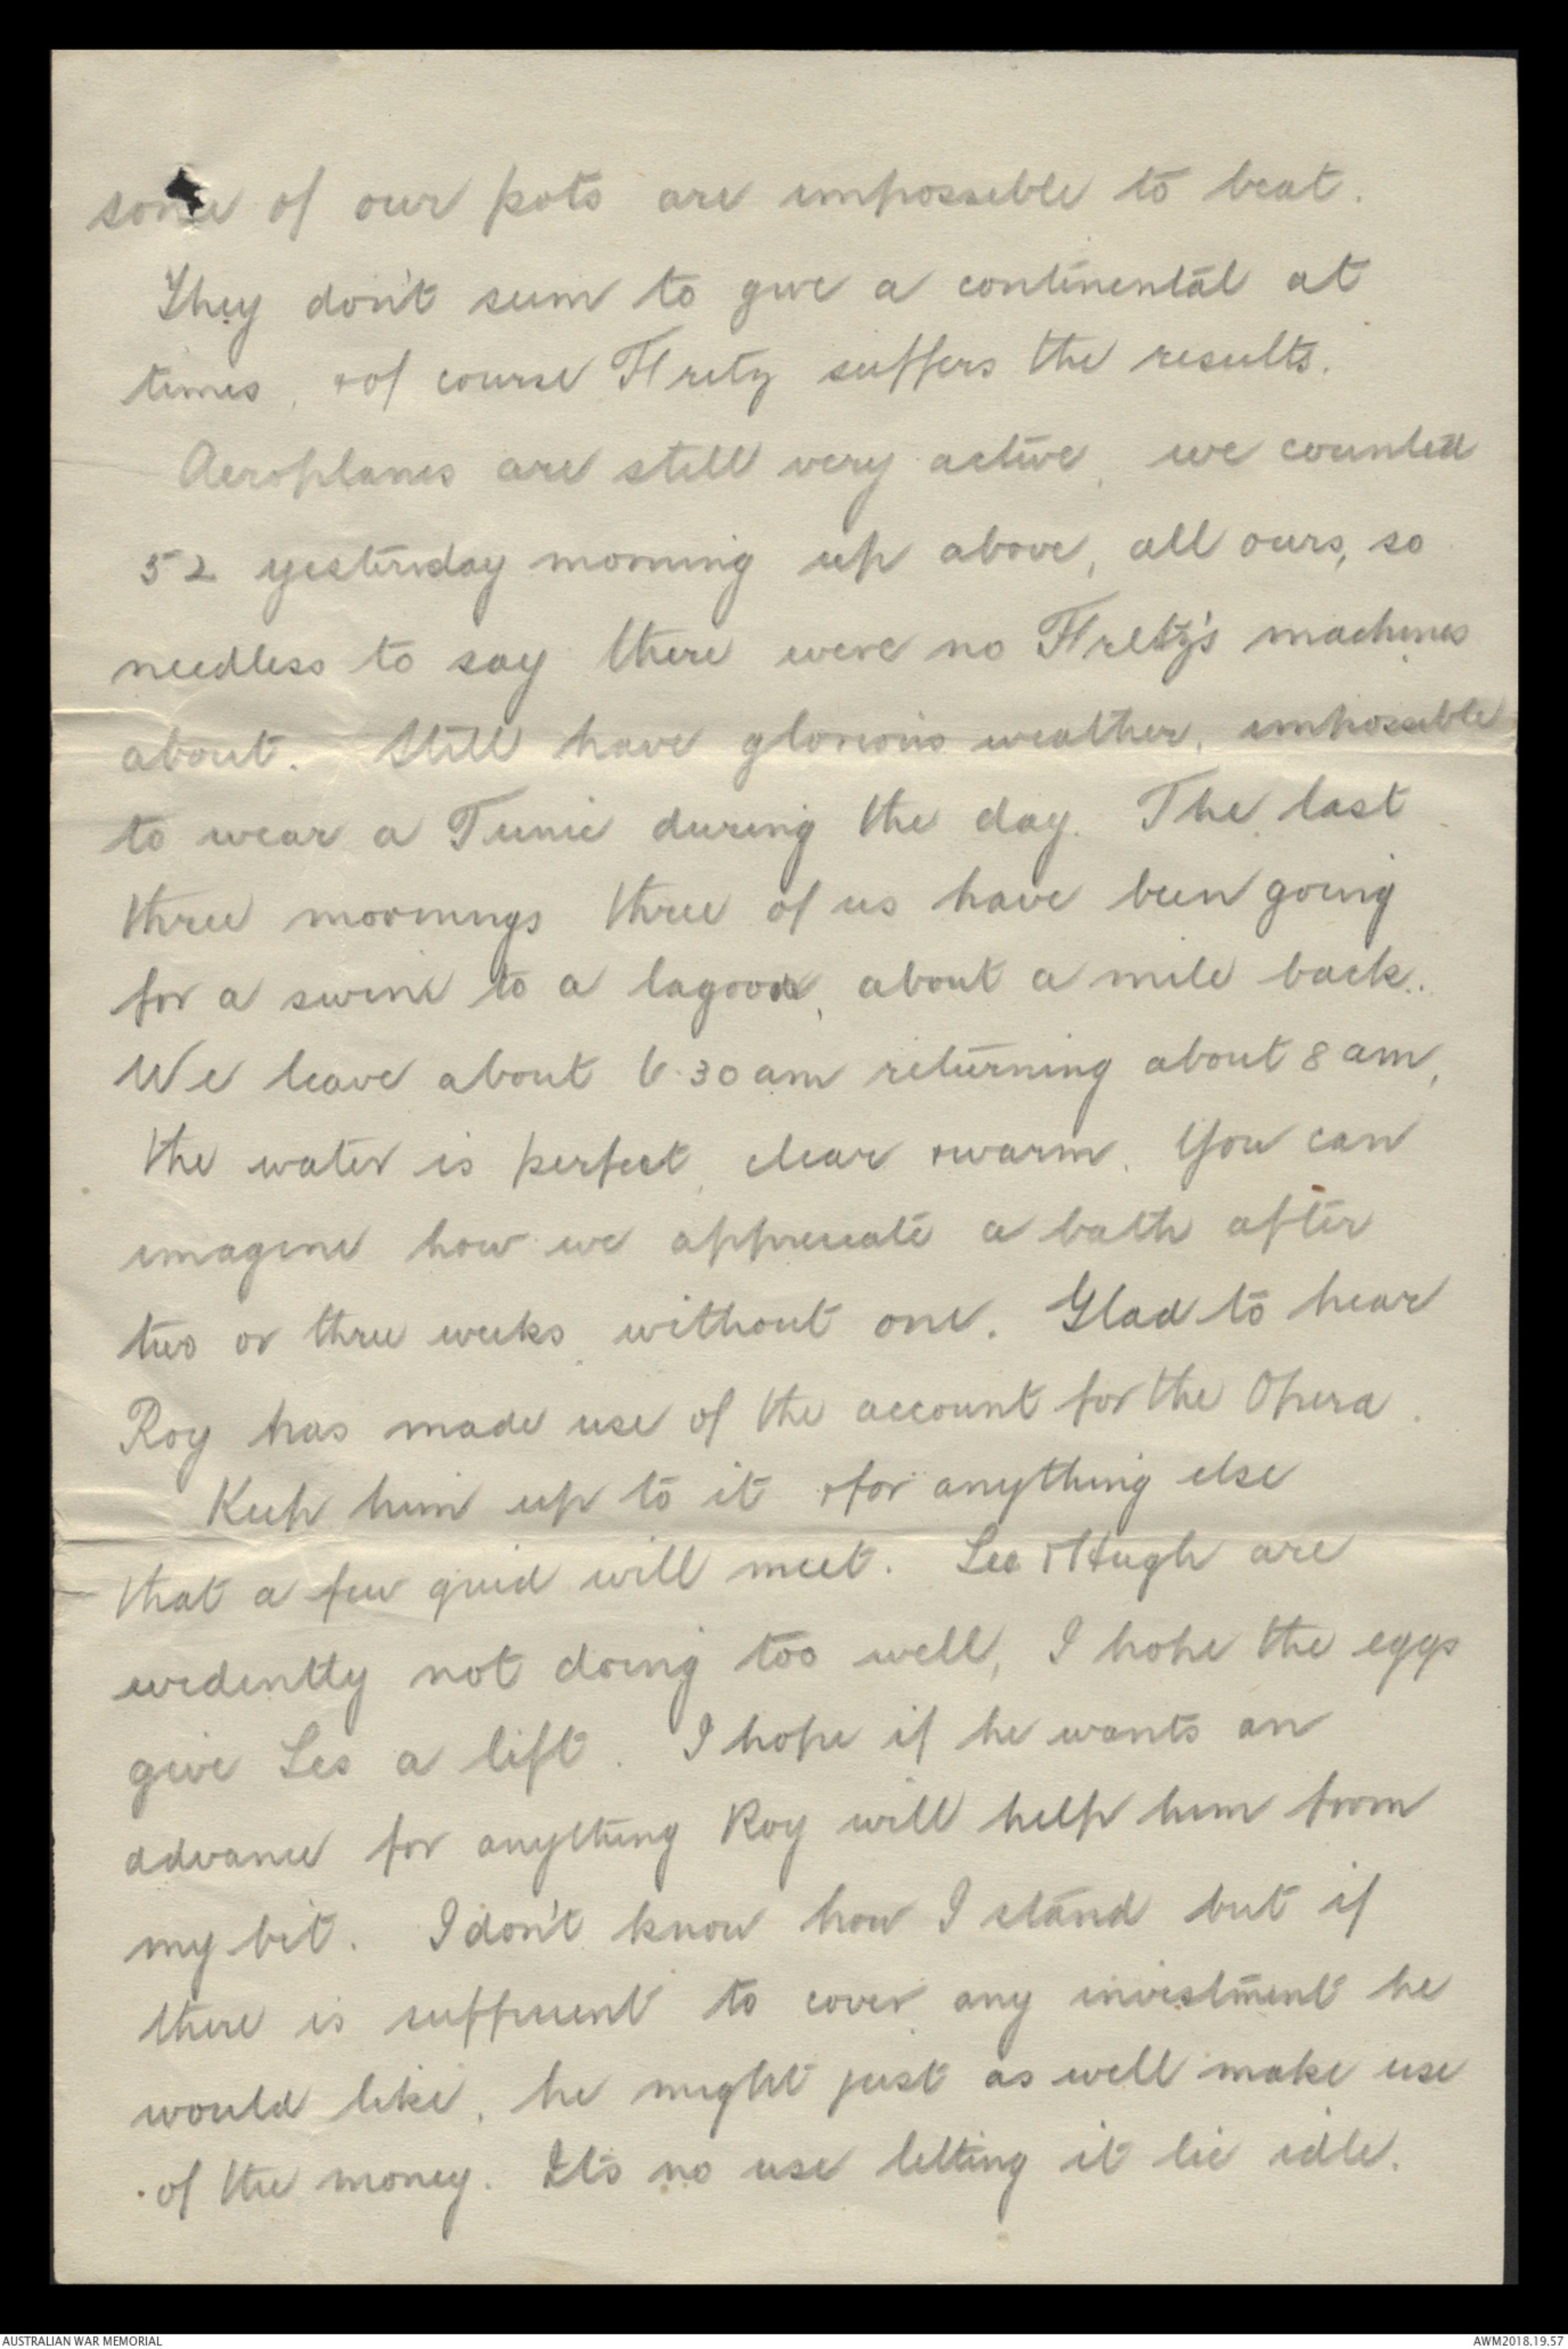 some of our pots are impossible to beat.
They don't seem to give a continental at
times, & of course Fritz suffers the results.
Aeroplanes are still very active, we counted
52 yesterday morning up above, all ours, so
needless to say there were no Fritz's machines
about. Still have glorious weather, impossible
to wear a Tunic during the day. The last
three mornings three of us have been going
for a swim to a lagoon, about a mile back.
We leave about 6.30 am returning about 8 am,
the water is perfect, clear & warm. You can
imagine how we appreciate a bath after
two or three weeks without one. Glad to hear
Roy has made use of the account for the Opera.
Keep him up to it & for anything else
that a few quid will meet. Les & Hugh are
evidently not doing too well, I hope the eggs
give Les a lift. I hope if he wants an
advance for anything Roy will help him from
my bit. I don't know how I stand but if
there is sufficient to cover any investment he
would like, he might just as well make use
of the money. It's no use letting it lie idle.
AUSTRALIAN WAR MEMORIAL
AWM2018.19.57